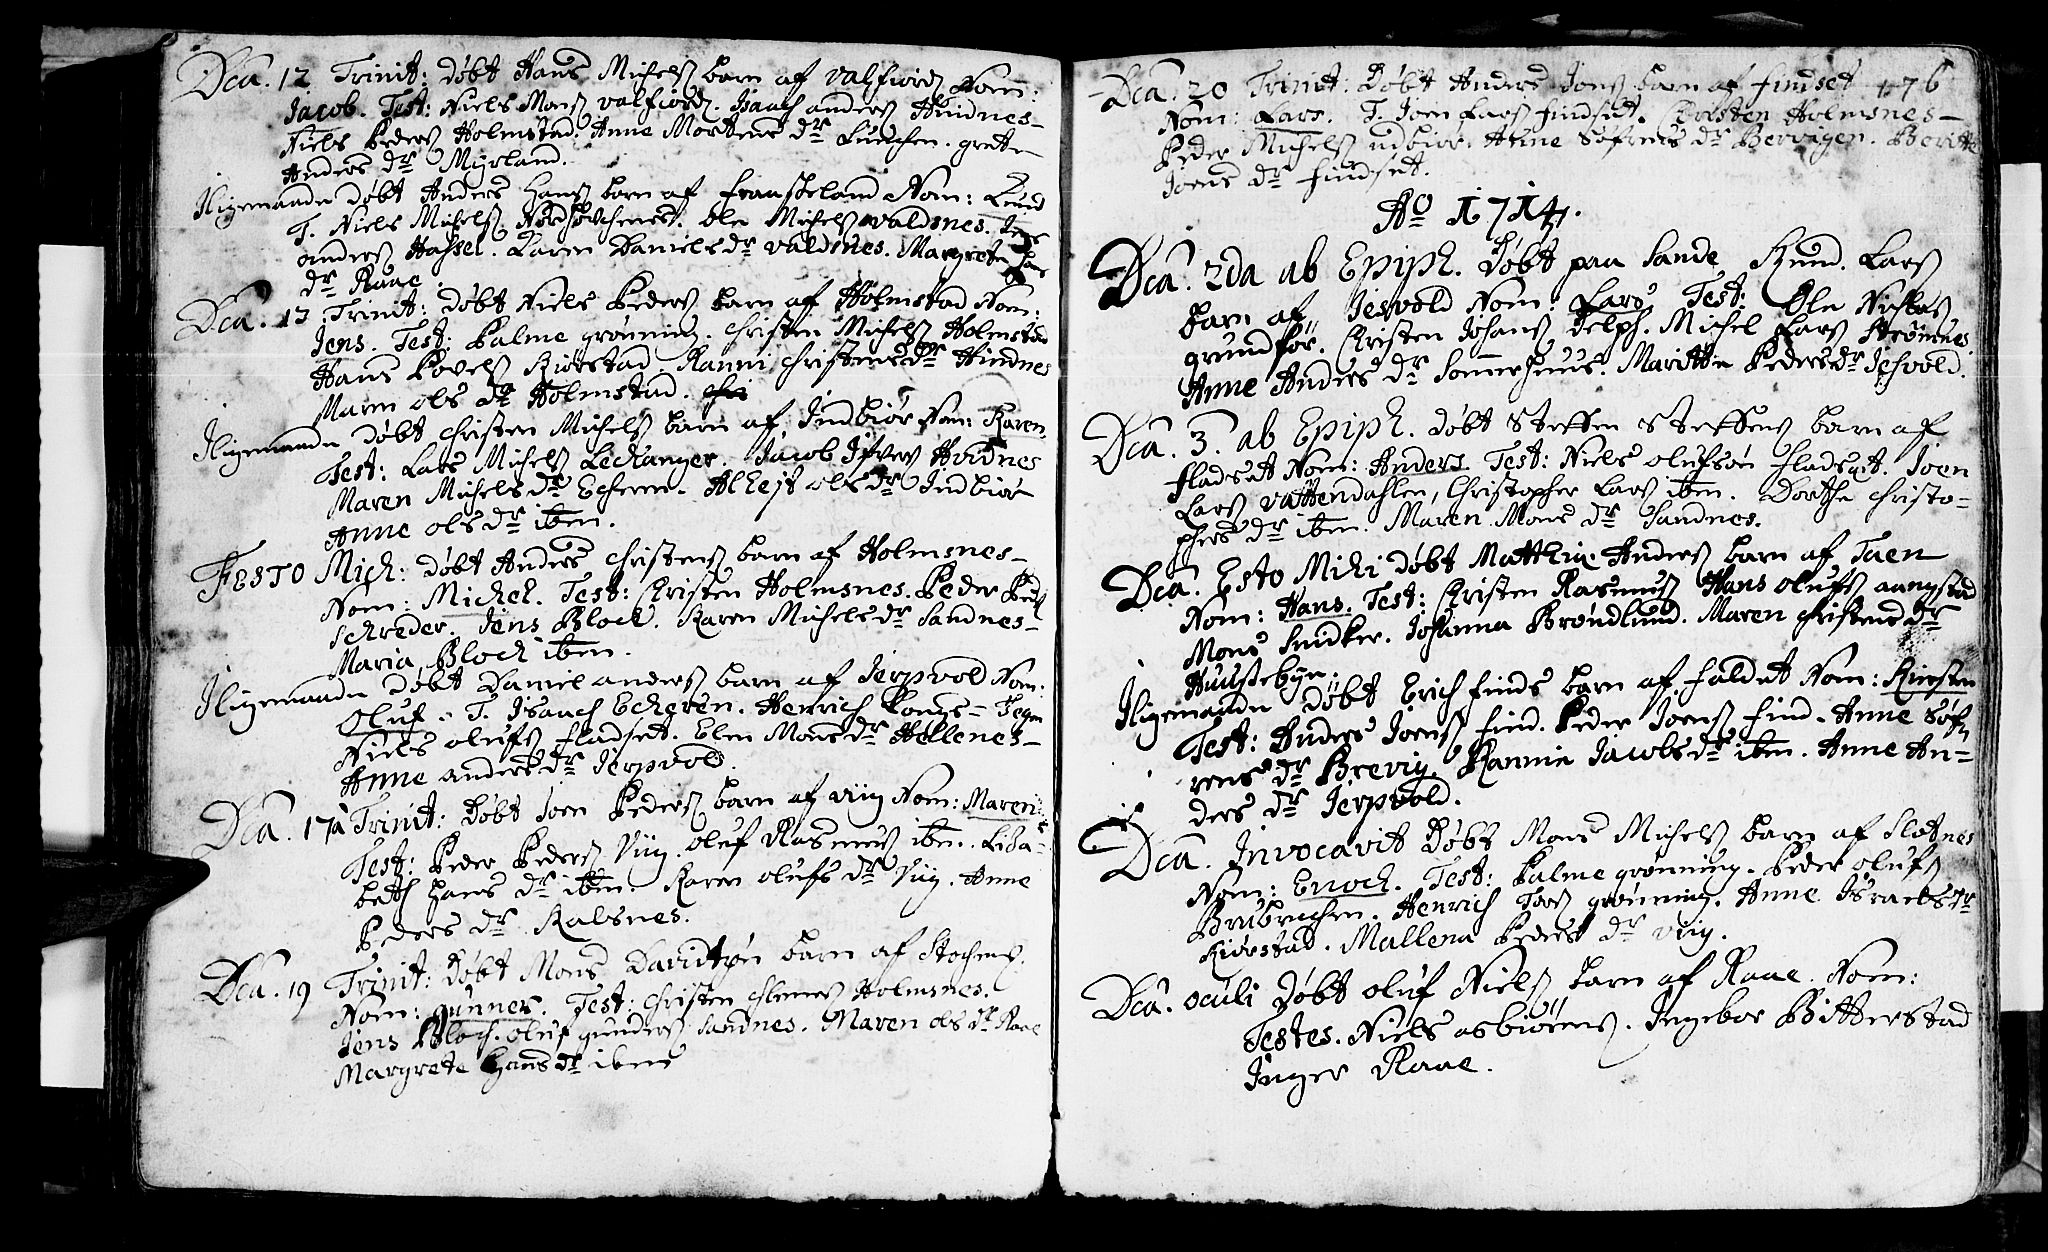 Dca. 12 Trinit: døbt Hans Michels barn af valfiord Nom:
Jacob. Test: Niels Mons valfiord. Isaach anders Hindnes-
Niels Peders Holmstad. Anne Mortens dr grete
Anders dr Myrland.
Iligemaade døbt Anders Hans barn af Nom: Knud
T. Niels Michels Ole Michels valdnes.
anders Hassel. Karen Daniels dr valdnes. Margrete Hans
dr Raae.
Dca. 13 Trinit: døbt Niels Peders barn af Holmstad Nom:
Jens. Test: Palme grønning. Christen Michels Holmstad
Hans Povels Kiørstad. Ranni Christens dr Hindnes
Maren ols dr Holmstad.
Iligemaade døbt Christen Michels barn af Indbiør Nom: Karen.
Test: Lars Michels Leckanger. Jacob Ifvers Hvidnes
Maren Michels dr Echeren. Alhejt ols dr Indbiør
Anne ols dr ibm.
FESTO Mich: døbt Anders Christens barn af Holmsnes-
Nom: Michel. Test: Christen Holmsnes. Peder Peds
Schreder. Jens Bloch. Karen Michels dr Sandnes-
Maria Bloch ibm.
Iligemaade døbt Daniel anders barn af Jerpvold Nom:
Oluf. T. Isaach Echeren. Henrich
Niels olufs fladset. Elen Mons dr Hellenes-
Anne anders dr Jerpvold.
Dca. 17a Trinit: Døbt Joen Peders barn af viig Nom: Maren
Test: Peder Peders Viig. oluf Rasmus ibm. Lisa-
beth Hans dr ibm. Karen olufs dr Viig. Anne
Peders dr Kalsnes.
Dca. 19 Trinit: Døbt Mons Davidtzøn barn af
Nom: gunner. Test: Christen Holmsnes.
Jens Bloch. oluf gunders Sandnes. Maren ols dr Raae
Margrete Hans dr ibm
Dca. 20 Trinit: Døbt Anders Jons barn af findset 176
Nom: Lars. T. Joen Lars findset. Christen Holmsnes-
Peder Michels indbiør. Anne Søfrens dr Bervigen. Beritte
Joens dr findset.
Ao 1714.
Dca. 2da ab Epiph. Døbt paa Sande Knud Lars
barn af Jesvold Nom: Lars. Test: Ole Nichlas
grundfør. Christen Johans Delph. Michel Lars Strømnes
Anne Anders dr Sommerhuus. Maritte Peders dr Jesvold.
Dca. 3. ab Epiph. døbt Steffen Steffens barn af
fladset Nom: Anders. Test: Niels olufsøn fladset. Joen
Lars vattendahlen, Christopher Lars ibm. Dorthe Christo-
phers dr ibm. Maren Mons dr Sandnes.
Dca. Esto Mihi døbt Matthie Anders barn af Taen
Nom: Hans. Test: Christen Rasmus Hans olufs aangstad
Mons Snidker. Johanna Brøndlund. Maren Christens dr
Huustebye.
Iligemaade Døbt Erich finds barn af faldet Nom: Kirsten
Test: Anders Joens find. Peder Joens find. Anne Søf-
rens dr Brevig. Rannie Jacobs dr ibm. Anne An-
ders dr Jerpvold.
Dca. Invocavit Døbt Mons Michels barn af Slotnes
Nom: Enoch. Test: Palme grønning. Peder olufs
Henrich Tors grønning. Anne Israels dr
Kiørstad. Mallena Peders dr viig.
Dca. oculi Døbt oluf Niels barn af Raae. Nom:
Testes. Niels asbiørns. Ingebor Bitterstad
Inger Raae.